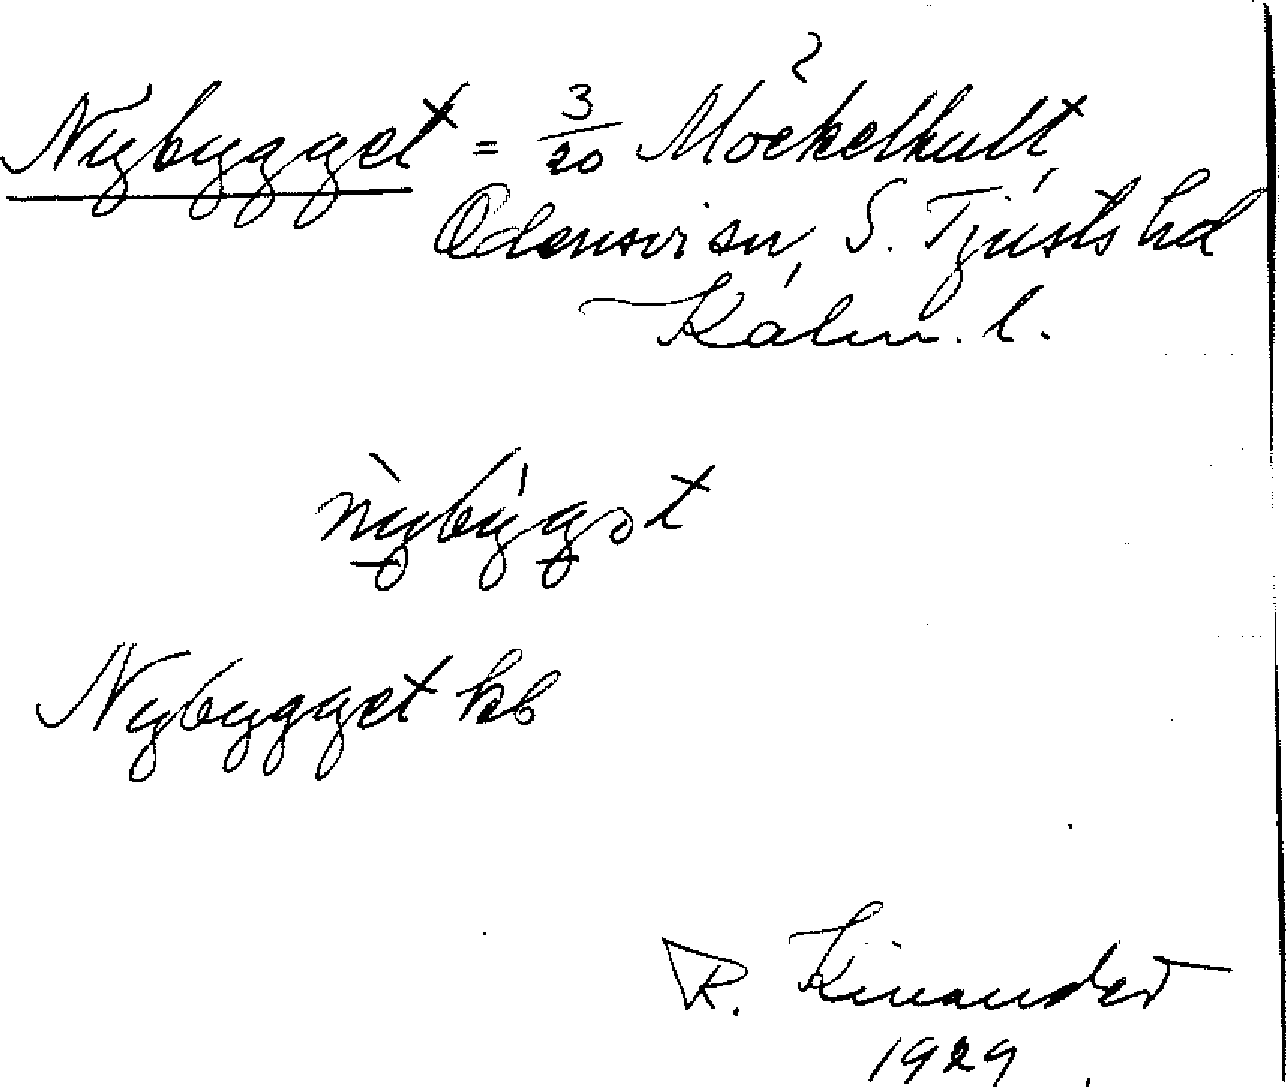 Nybygget = 3/20 Möckelhult,
Odensvi sn, S. Tjusts hd
Kalm. l.
nỳbýgət
Nybygget kb
R. Kinander
1929